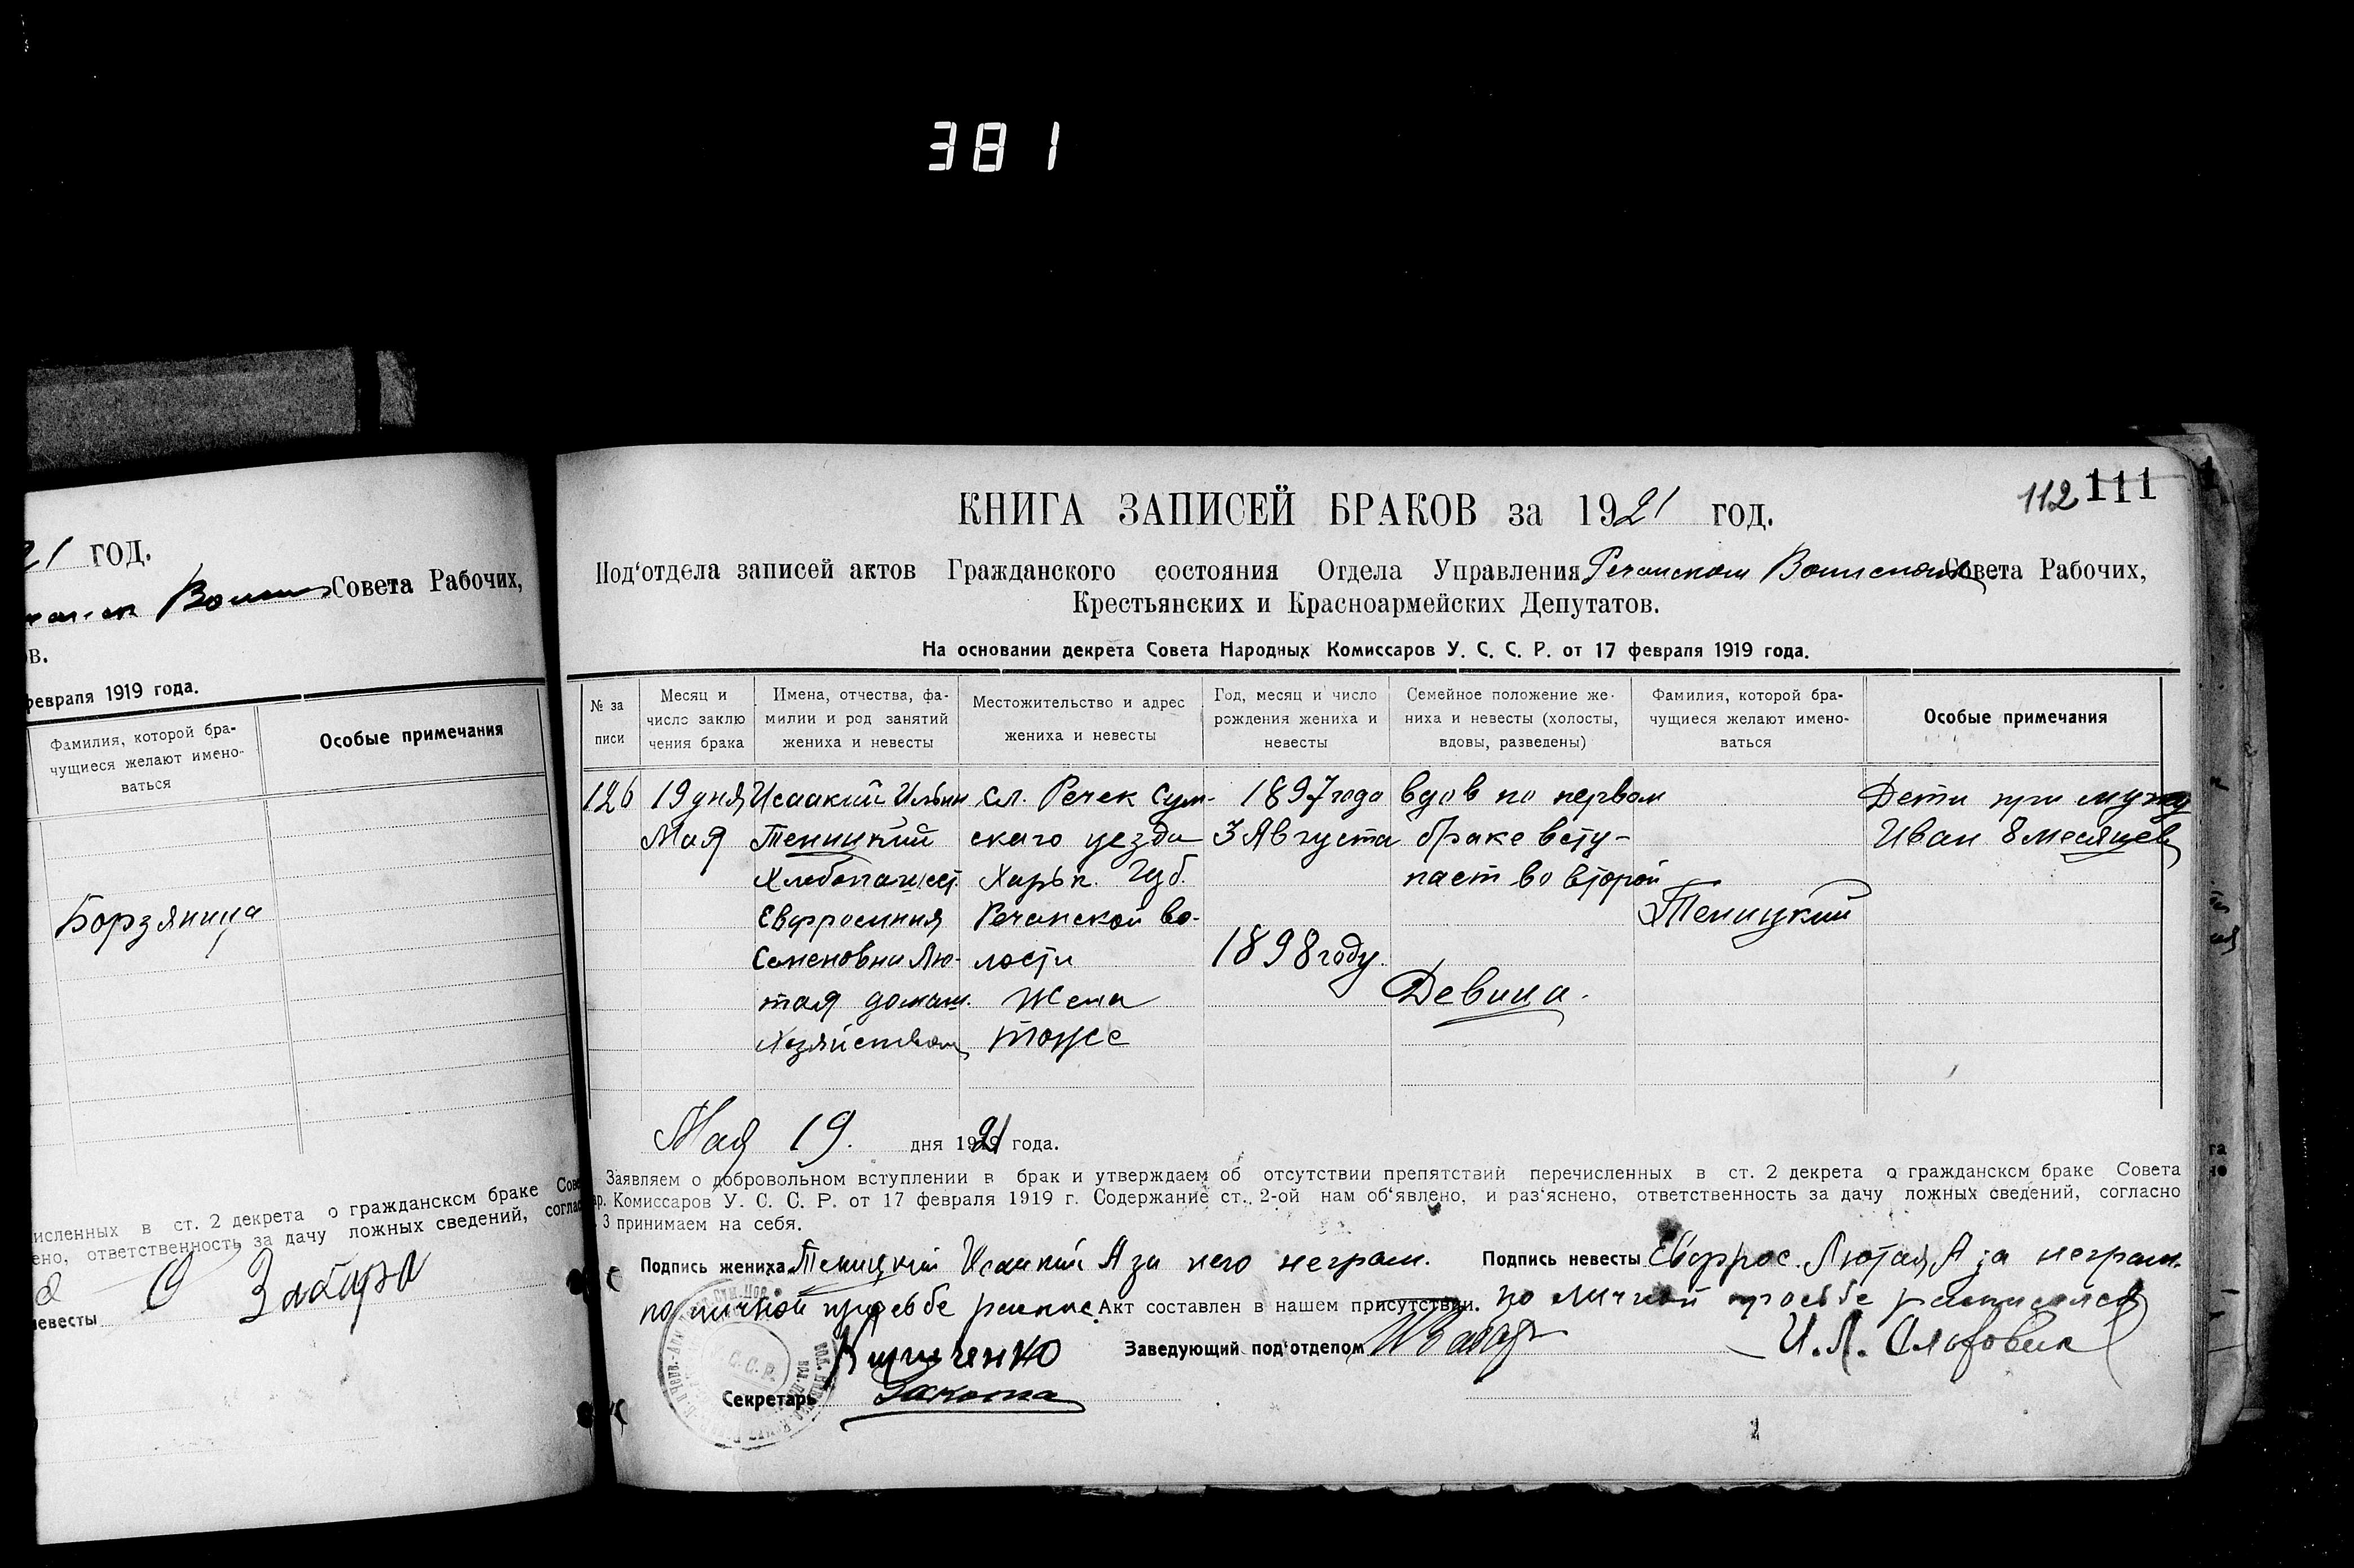 381
21 год.
Совета Рабочих,
ов.
февраля 1919 года.
Фамилия, которой бра-
чущиеся желают имено-
ваться
Особые примечания
Борзяница
исленных в ст. 2 декрета о гражданском браке Сове
ено, ответственность за дачу ложных сведений, соглас
невесты
112 111
КНИГА ЗАПИСЕЙ БРАКОВ за 1921 год.
Под'отдела записей актов Гражданского состояния Отдела Управления Речанском Волисполк Совета Рабочих,
Крестьянских и Красноармейских Депутатов.
На основании декрета Совета Народных Комиссаров У. С. С. Р. от 17 февраля 1919 года.
№ за
писи
Месяц и
число заклю
чения брака
Имена, отчества, фа-
милии и род занятий
жениха и невесты
Местожительство и адрес
жениха и невесты
Год, месяц и число
рождения жениха и
невесты
Семейное положение же-
ниха и невесты (холосты,
вдовы, разведены)
Фамилия, которой бра-
чущиеся желают имено-
ваться
Особые примечания
126
19 дня
Мая
Исаакий Ильин
Теницкий
Хлебопашест.
Евфросиния
Семеновна Лю-
тая домаш.
Хозяйством
сл. Речек Сум-
ского уезда
Харьк. Губ.
Речанской во-
лости
Жена
тоже
1897 года
3 Августа
1898 году.
вдов по первом
браке всту-
пает во второй
Девица.
Теницкий
Дети при муже
Иван 8 месяцев
Мая 19. дня 1921 года.
Заявляем о добровольном вступлении в брак и утверждаем об отсутствии препятствий перечисленных в ст. 2 декрета о гражданском браке Совета
ар. Комиссаров У. С. С. Р. от 17 февраля 1919 г. Содержание ст. 2-ой нам об'явлено, и раз'яснено, ответственность за дачу ложных сведений, согласно
3 принимаем на себя.
Подпись жениха Теницкий Исаакий А за него неграм. Подпись невесты Евфрос. Лютая А за неграм.
по личной просьбе распис. Акт составлен в нашем присутствии. по личной просьбе расписался
Заведующий под'отделом
Секретарь